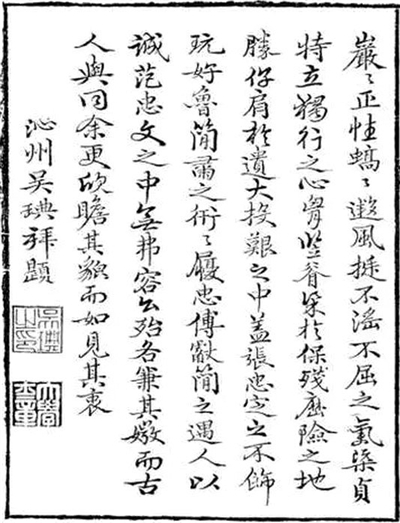 巖〻正性蟜〻遐風挺不滛不屈之氣槩貞
特立獨行之心膂堅脊梁於保殘歷險之地
勝仔肩於遺大投艱之中蓋張忠定之不飾
玩好魯簡肅之衎〻履忠傅獻簡之遇人以
誠范忠文之中無弗容公殆各兼其媺而古
人與同余更欣瞻其貌而如見其衷
沁州吳琠拜題